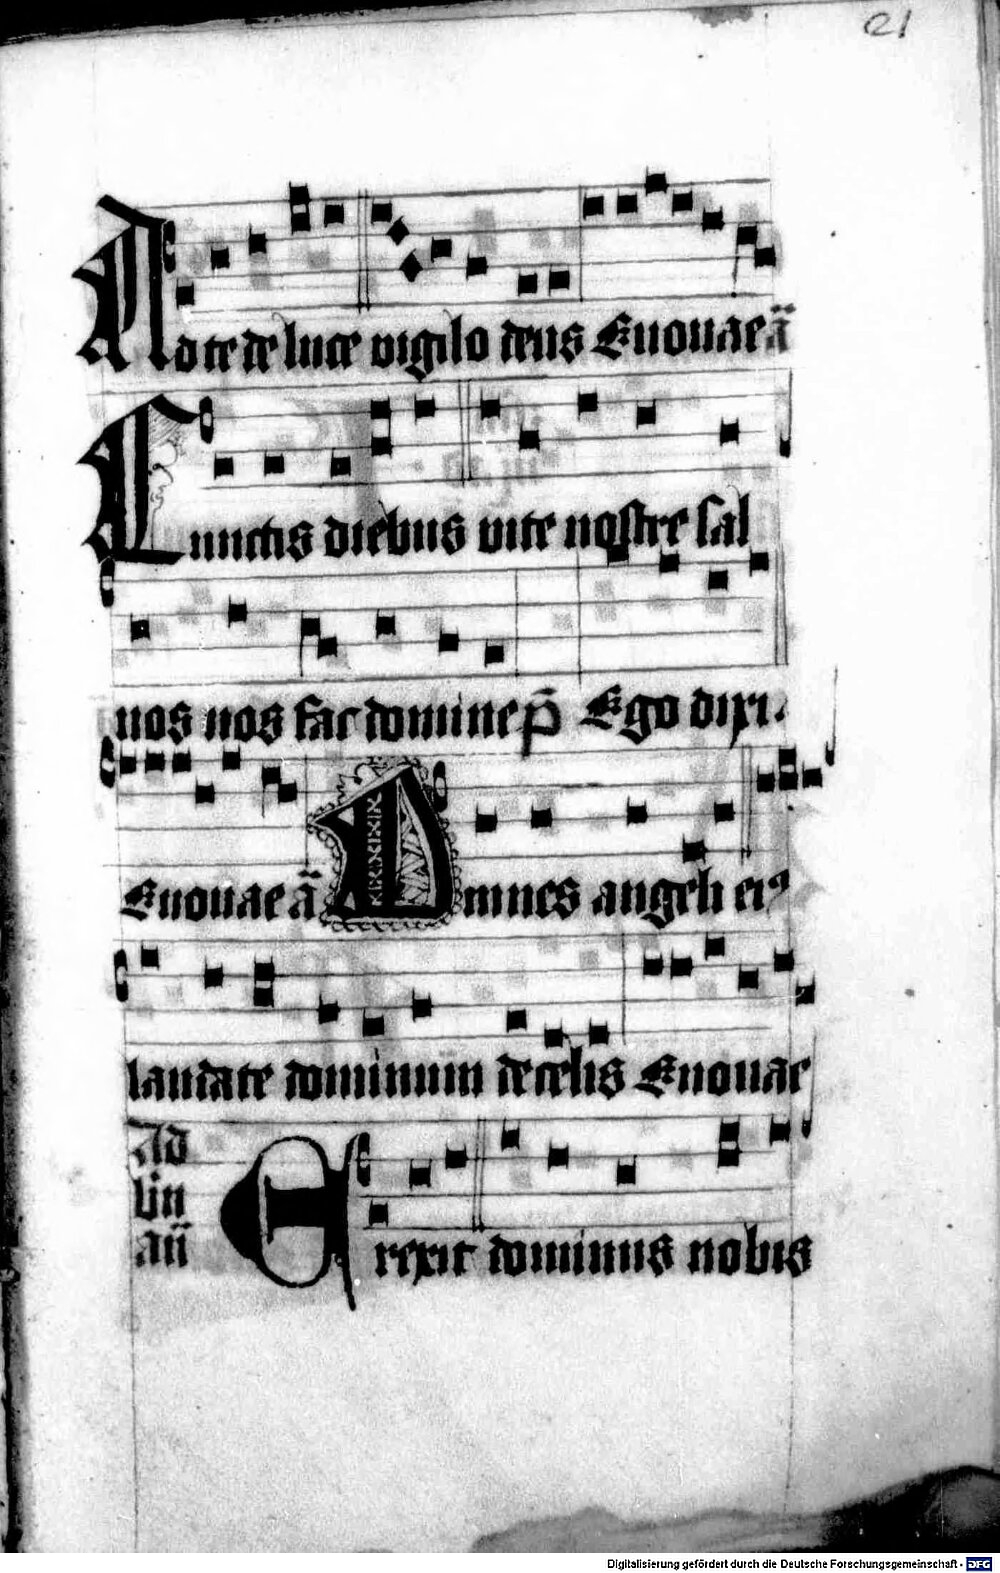 21
Ad te de luce vigilo deus Euouae ā
Cunctis diebus vite nostre sal
uos nos fac domine p̄ Ego dixi.
Euouae ā Omnes angeli eiꝰ
laudate dominum de celis Euouae
Ad
bn̄
an̄ Erexit dominus nobis
Digitalisierung gefördert durch die Deutsche Forschungsgemeinschaft - DFG